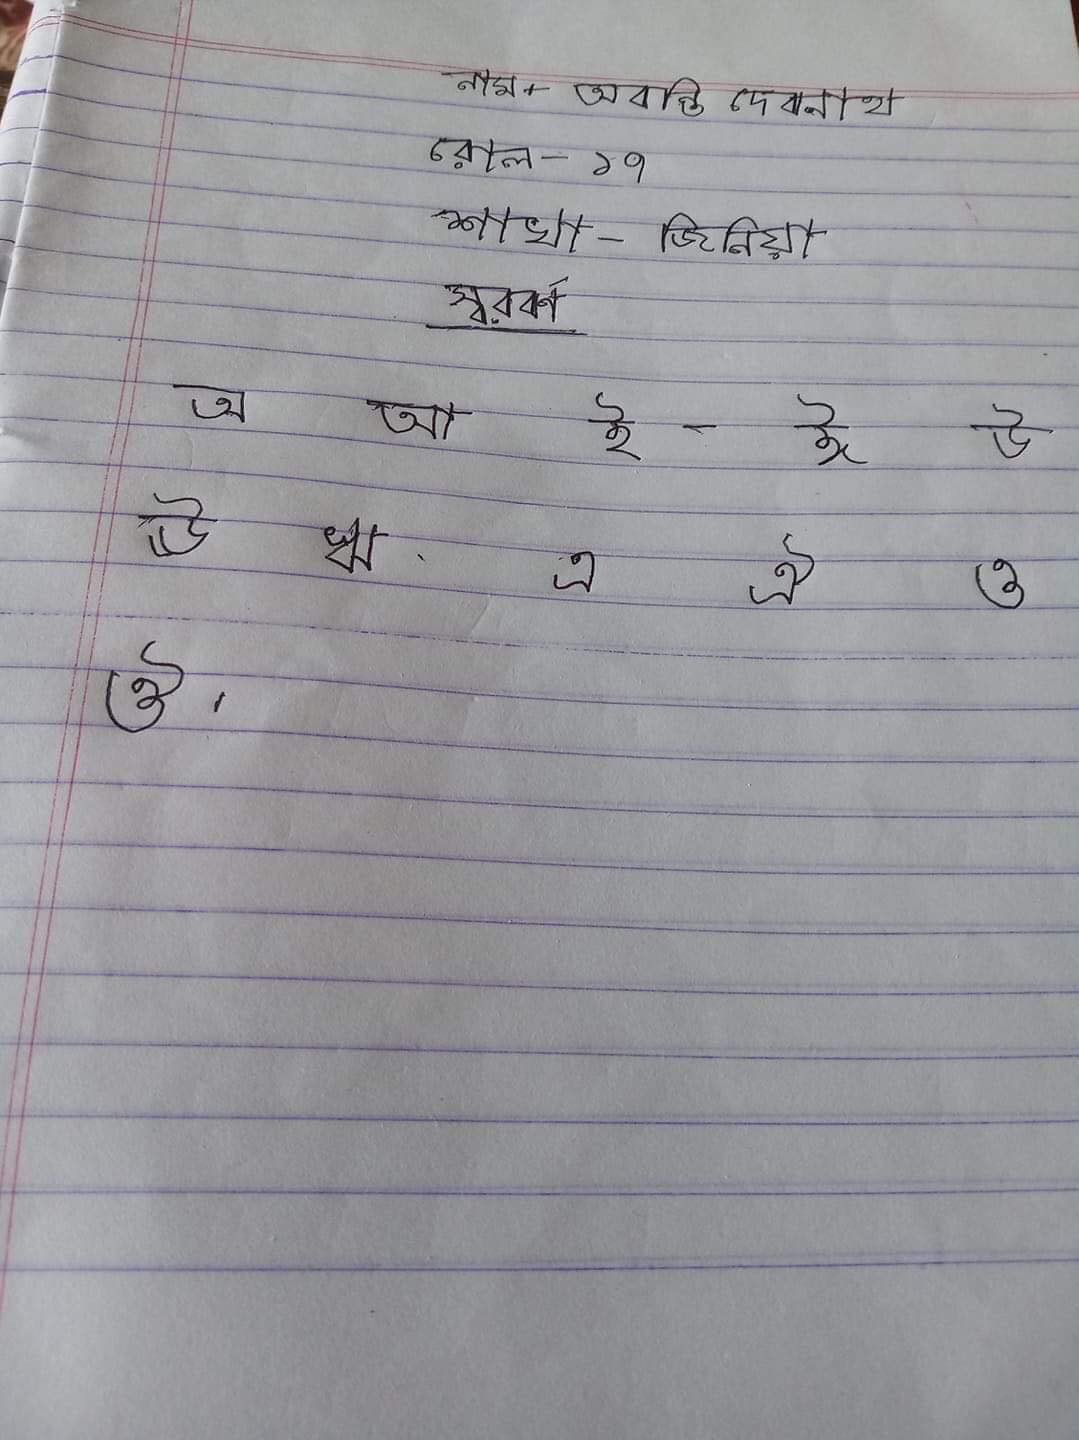 নাম+ অবন্তি দেবনাথ
রোল- ১৭
শাখা- জিনিয়া
স্বরবর্ণ
অ আ ই - ঈ উ
ঊ ঋ . এ ঐ ও
ঔ ।